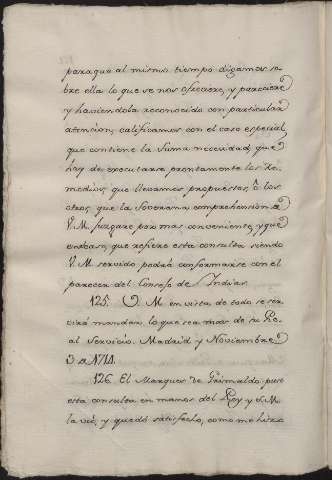 para que al mismo tiempo digamos so-
bre ella lo que se nos ofreciere, y pareciere
y haviendola reconocido con particular
atencion, calificamos con el caso especial
que contiene la suma necesidad, que
hay de executarse prontamente los Re-
medios, que llevamos propuestos, ò los
otros, que la Soverana comprehension de
V. M. juzgare por mas conveniente, y que
en baso, que refiere esta consulta siendo
V. M. servido, podrá conformarse con el
parecer del Consejo de Indias.
125. V. M. en vista de todo se ser-
virá mandar, lo que sea mas de su Re-
al Servicio. Madrid y Noviembre
3 a 1714.
126. El Marques de Grimaldo, puso
esta consulta en manos del Rey y S. M.
la vió, y quedó satisfecho, como me hizo